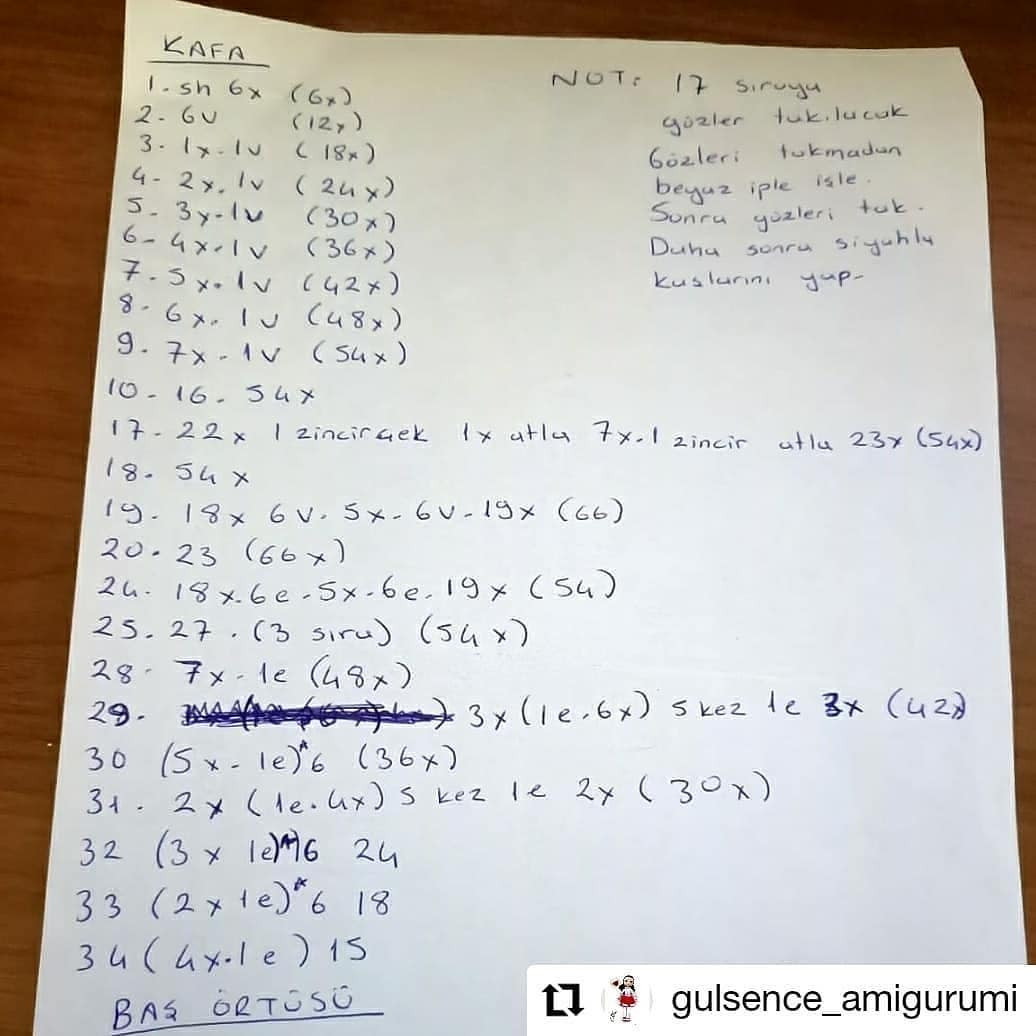 KAFA
1. sh 6x (6x)
2. 6v (12x)
3. 1x.1v (18x)
4. 2x.1v (24x)
5. 3x-1v (30x)
6- 4x.1v (36x)
7. 5x.1v (42x)
8. 6x.1v (48x)
9. 7x-1v (54x)
10-16. 54x
17-22x 1 zincir çek 1x atla 7x.1 zincir atla 23x (54x)
18. 54x
19. 18x 6v. 5x- 6v-19x (66)
20. 23 (66x)
24. 18x.6e-5x-6e.19x (54)
25. 27. (3 sıra) (54x)
28- 7x-1e (48x)
29. 3x(1e.6x) 5 kez 1e 3x (42x)
30 (5x-1e)*6 (36x)
31. 2x (1e.4x) 5 kez 1e 2x (30x)
32 (3x 1e)*6 24
33 (2x 1e)*6 18
34 (4x.1e) 15
BAŞ ÖRTÜSÜ
NOT: 17 sıraya
gözler takılacak
Gözleri takmadan
beyaz iple işle.
Sonra gözleri tak.
Daha sonra siyahla
kaşlarını yap-
gulsence_amigurumi